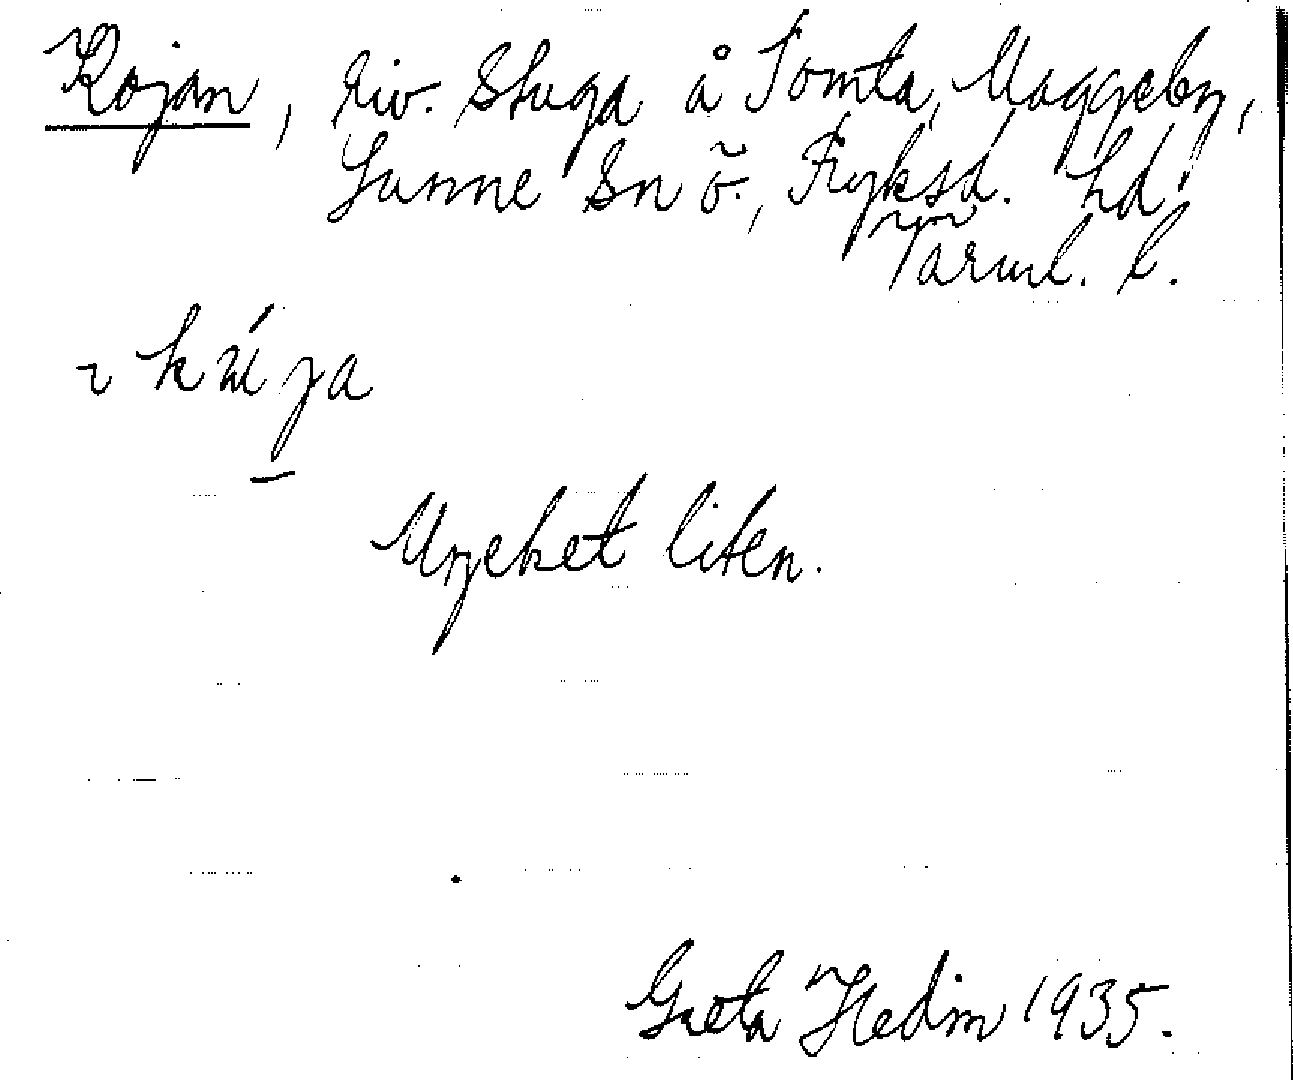 Kojan, riv. stuga å Tomta, Maggeby,
Sunne sn ö., Fryksd. hd,
Värml. l.
Mycket liten.
Greta Hedin 1935.